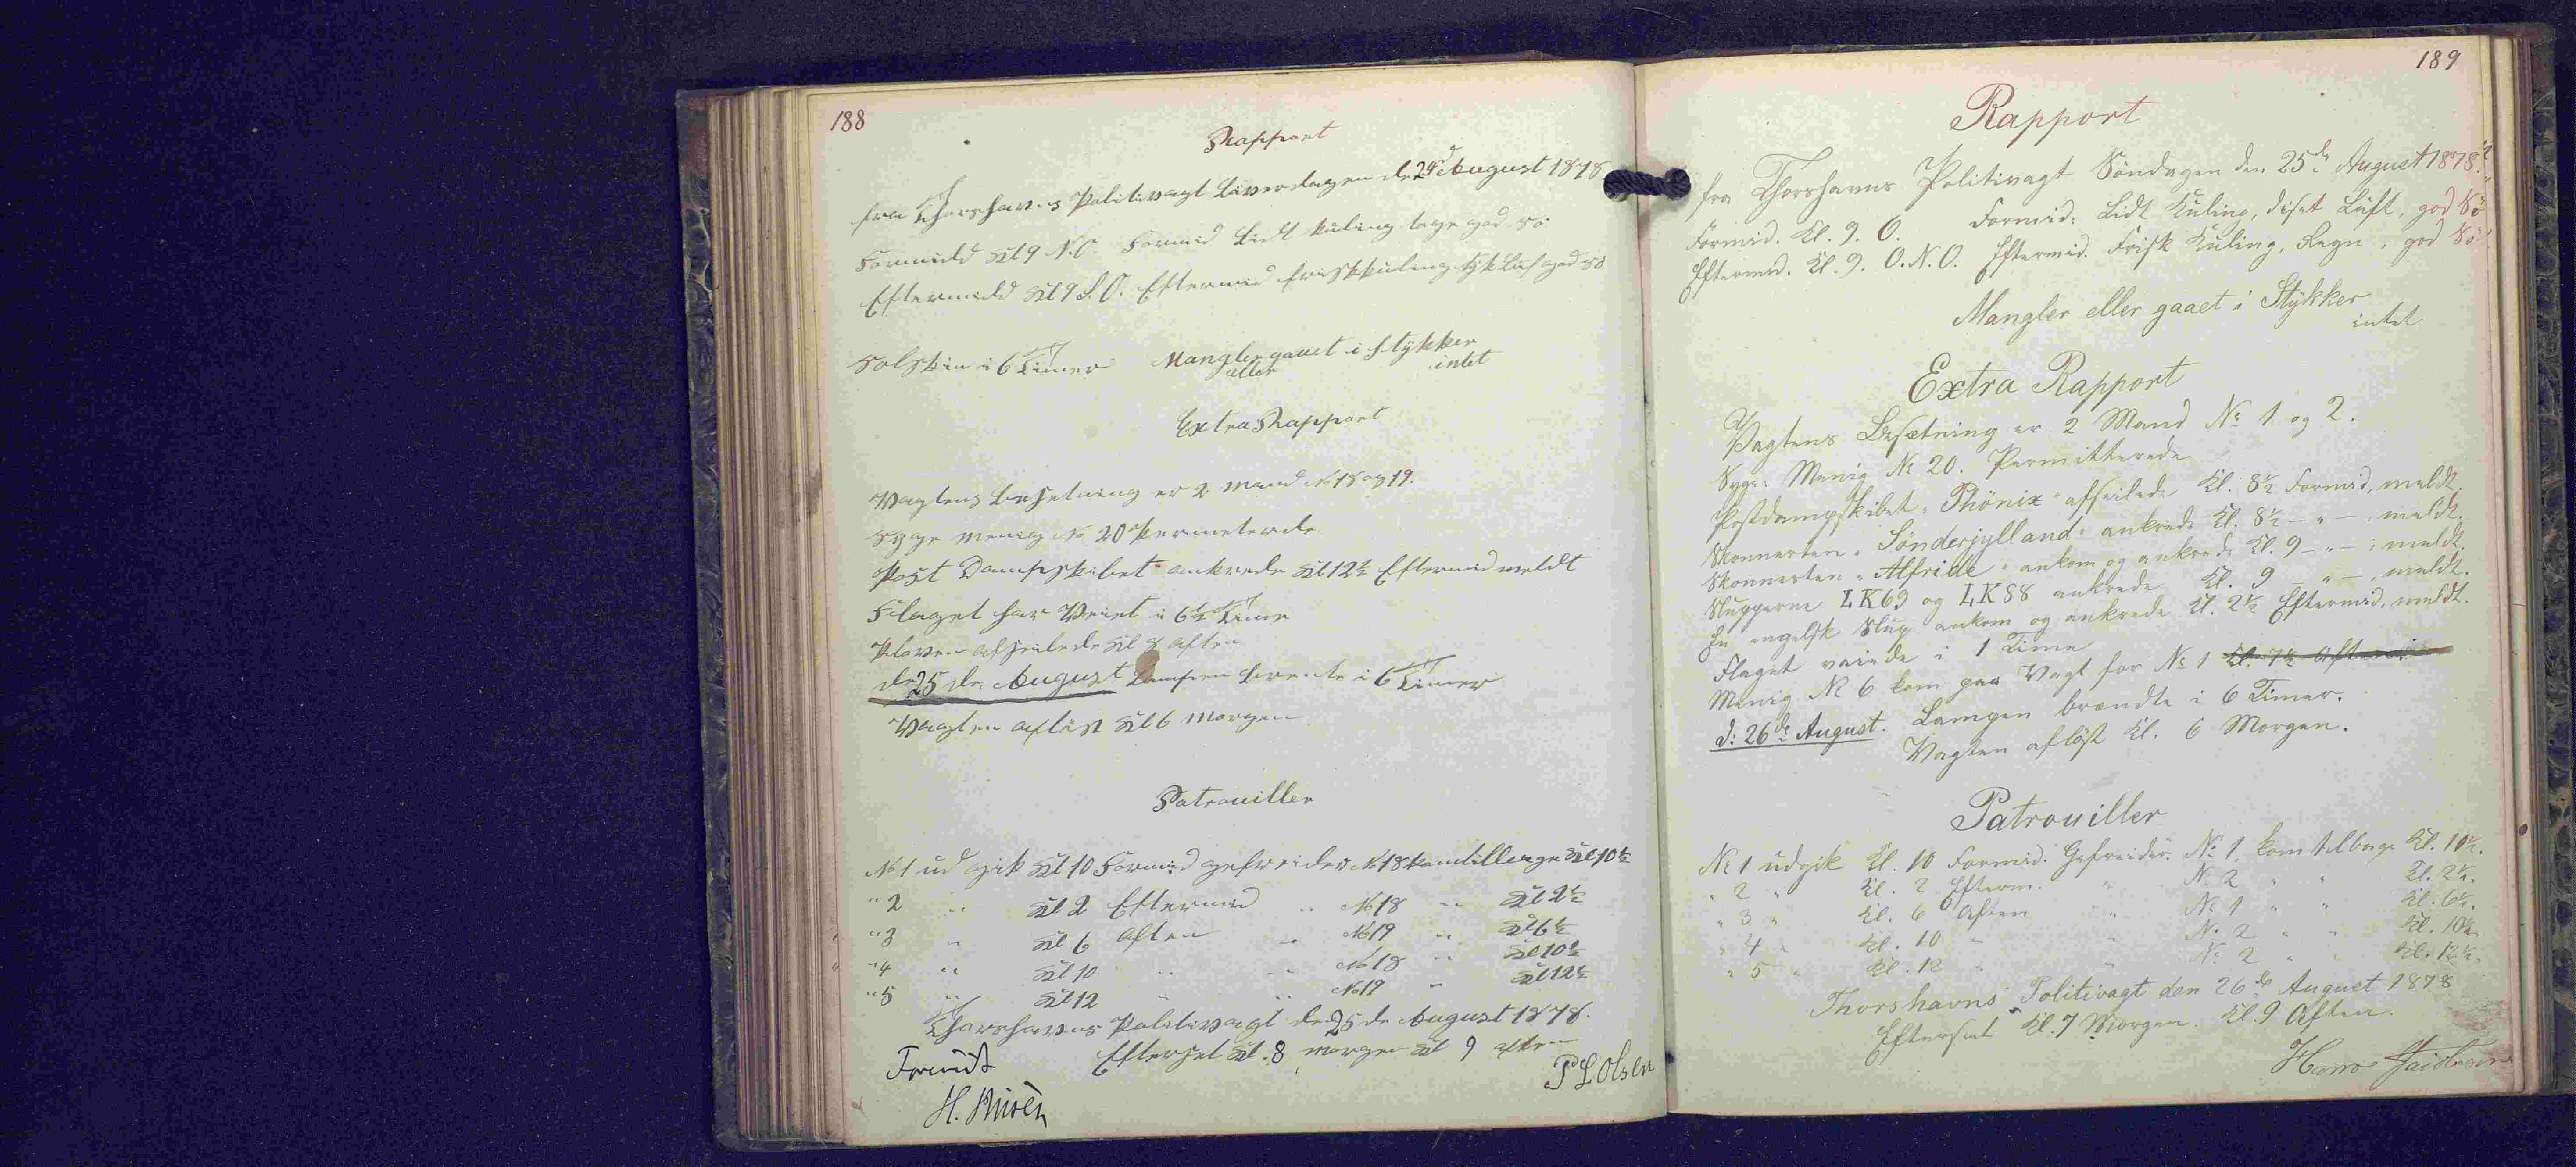 188
Rapport
fra Thorshavns Politivagt Löverdagen d. 24d August 1878
Formidd Kl 9 N.O. Formid Lidt kuling tage god Sö
Eftermidd Kl 9 S.O. Eftermid frisk kuling tyk Luf god Sö
Solskin i 6 Timer Mangler eller gaaet i Stykker
intet
Extra Rapport
Vagtens besetning er 2 Mand No 18 og 19.
Syge menig No 20 Permeterede
Post Dampskibet ankrede Kl 12½ Eftermid meldt
Flaget har Veiet i 6½ Time
afseilede Kl 8 aften
de 25 de August Lampen brente i 6 Timer
Vagten aflöst Kl 6 Morgen
Patrouiller
No 1 ud gik Kl 10 Formid gefreider No 18 kom tilbage Kl 10½
" 2 " Kl 2 Eftermid " No 18 " Kl 2½
" 3 " Kl 6 Aften " No 19 " Kl 6½
" 4 " Kl 10 " " No 18 " Kl 10½
" 5 " Kl 12 " " No 19 " Kl 12½
Thorshavns Politivagt den 25 de August 1878.
Efterset Kl. 8 morgen Kl 9 aften
P L Olsen
H.
189
Rapport
fra Thorshavns Politivagt Söndagen den 25de August 1878.
Formid. Kl. 9. O. Formid: Lidt Kuling, diset Luft, god Sö
Eftermid. Kl. 9. O.N.O. Eftermid. Frisk Kuling, Regn, god Sö
Mangler eller gaaet i Stykker
intet
Extra Rapport
Vagtens Besætning er 2 Mand No 1 og 2.
Syge: Menig No 20. Permitterede
Postdampskibet "Phönix" afseilede Kl. 8½ Formid, meldt.
Skonnerten "Sönderjylland" ankrede Kl. 8½ - " - , meldt.
Skonnerten "Alfride" ankom og ankrede Kl. 9 - " - ; meldt.
Slupperne LK69 og LK88 ankrede Kl. 9 - " - , meldt.
En engelsk Slup ankom og ankrede Kl. 2½ Eftermid, meldt.
Flaget vaiede i 1 Time
Menig No 6 kom paa Vagt for No 1 Kl. 7½ Aften
d: 26de August. Lampen brændte i 6 Timer.
Vagten aflöst Kl. 6 Morgen.
Patrouiller
No 1 udgik Kl. 10 Formid. Gefreider. No 1. kom tilbage Kl. 10½.
" 2 " Kl. 2 Efterm. " No 2 " " Kl. 2½.
" 3 " Kl. 6 Aften " No 1 " " Kl. 6½.
" 4 " Kl. 10 " " No 2 " " Kl. 10½.
" 5 " Kl. 12 " " No 2 " " Kl. 12½.
Thorshavns Politivagt den 26de August 1878
Efterset Kl. 7 Morgen. Kl. 9 Aften.
Hans